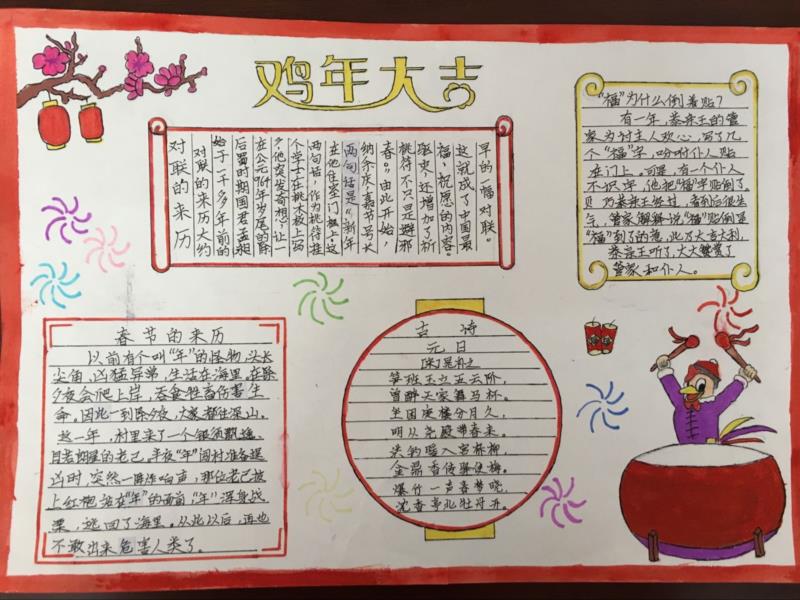 鸡年大吉
对联的来历
对联的来历大约
始于一千多年前的
后蜀时期国君孟昶
在公元964年岁尾的除
夕,他突发奇想,让一
个学士在桃木板上写
两句话,作为桃符挂
在他住室门框上。这
两句话是“新年
纳余庆,嘉节号长
春。”由此开始,
桃符不仅是避邪
驱灾,还增加了祈
福、祝愿的内容。
这就成了中国最
早的一幅对联。
“福”为什么倒着贴?
有一年,恭亲王的管
家为讨主人欢心,写了几
个“福”字,吩咐仆人贴
在门上。可是,有一个仆人
不识字,他把“福”字贴倒了。
恭亲王经过,看到后很生
气,管家解释说“福”贴倒是
“福”到了的意,此乃大吉大利,
恭亲王听了,大大赞赏了
管家和仆人。
春节的来历
以前有个叫“年”的怪物,头长
尖角,凶猛异常,生活在海里,在除
夕夜会爬上岸,吞食牲畜伤害生
命。因此一到除夕夜,大家都往深山。
这一年,村里来了一个银须飘逸、
目若朗星的老已,半夜“年”闯村准备逞
凶时,突然一阵炸响声,那位老已披
上红袍站在“年”的面前,“年”浑身战
栗,逃回了海里。从此以后,再也
不敢出来危害人类了。
古诗
元日
[宋]晁补之
班玉立五云阶,
曾醉天家马杯。
楼分月久,
从尧殿带春来。
暖入宫
金
爆竹一声春梦晓,
沈香亭北牡丹开。